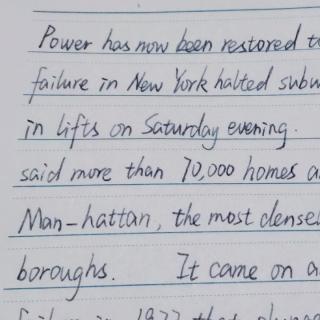 Power has now been restored t
failure in New York halted subw
in lifts on Saturday evening.
said more than 70,000 homes a
Man-hattan, the most densel
boroughs. It came on a
in 1977 that